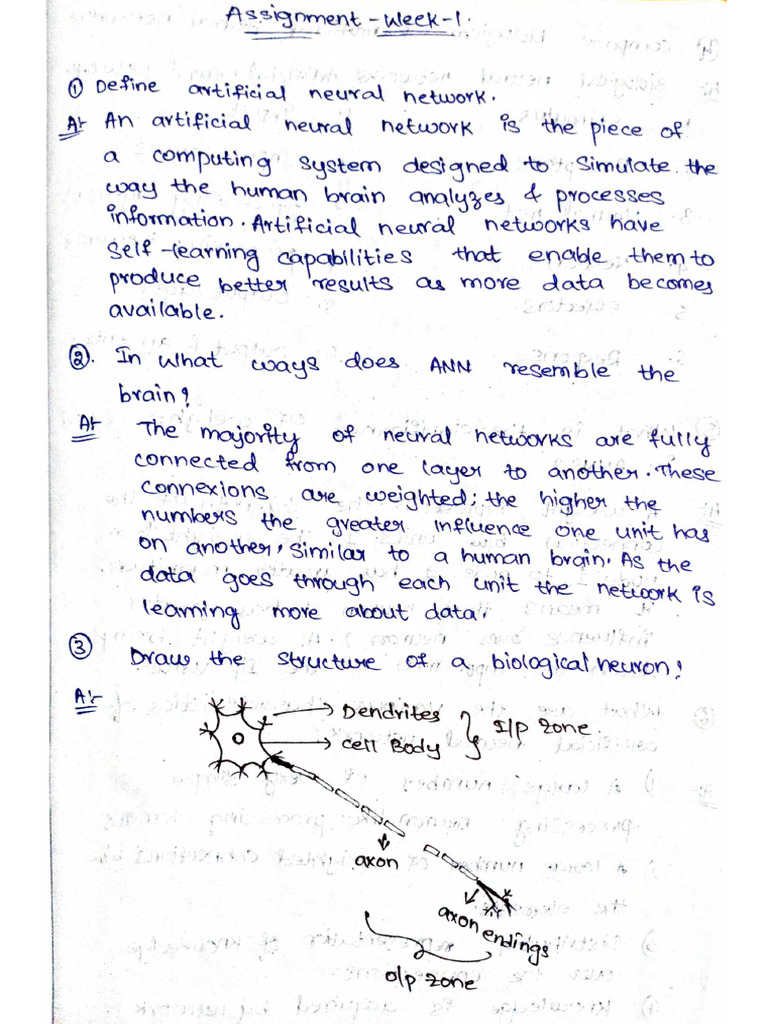 Assignment - Week-1.
① Define artificial neural network.
A:- An artificial neural network is the piece of
a computing system designed to simulate the
way the human brain analyzes & processes
information. Artificial neural networks have
self-learning capabilities that enable them to
produce better results as more data becomes
available.
②. In what ways does ANN resemble the
brain?
A:- The majority of neural networks are fully
connected from one layer to another. These
connexions are weighted; the higher the
numbers the greater influence one unit has
on another, similar to a human brain. As the
data goes through each unit the network is
learning more about data.
③ Draw the structure of a biological neuron!
A:-
Dendrites
Cell Body
I/p zone
axon
axon endings
o/p zone